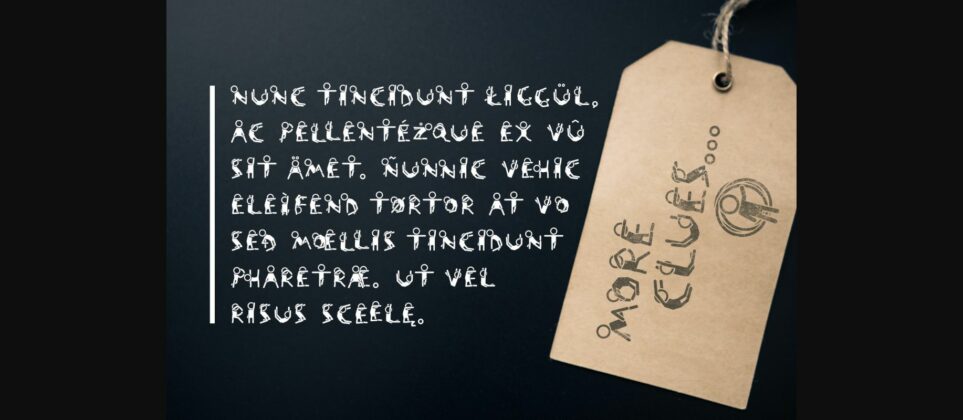 NUNC TINCIDUNT ŁIGÇÜL.
AC PELLENTÉŻQUE EX VÛ
SIT ÄMET. ÑUNNIC VEHIC
ELEÌFEND TØRTOR ÀT VO
SED MŒLLIS TINCIDUNT
PHARETRÆ. UT VEL
RISUS SCEÊLĘ.
MORE
CLUES...